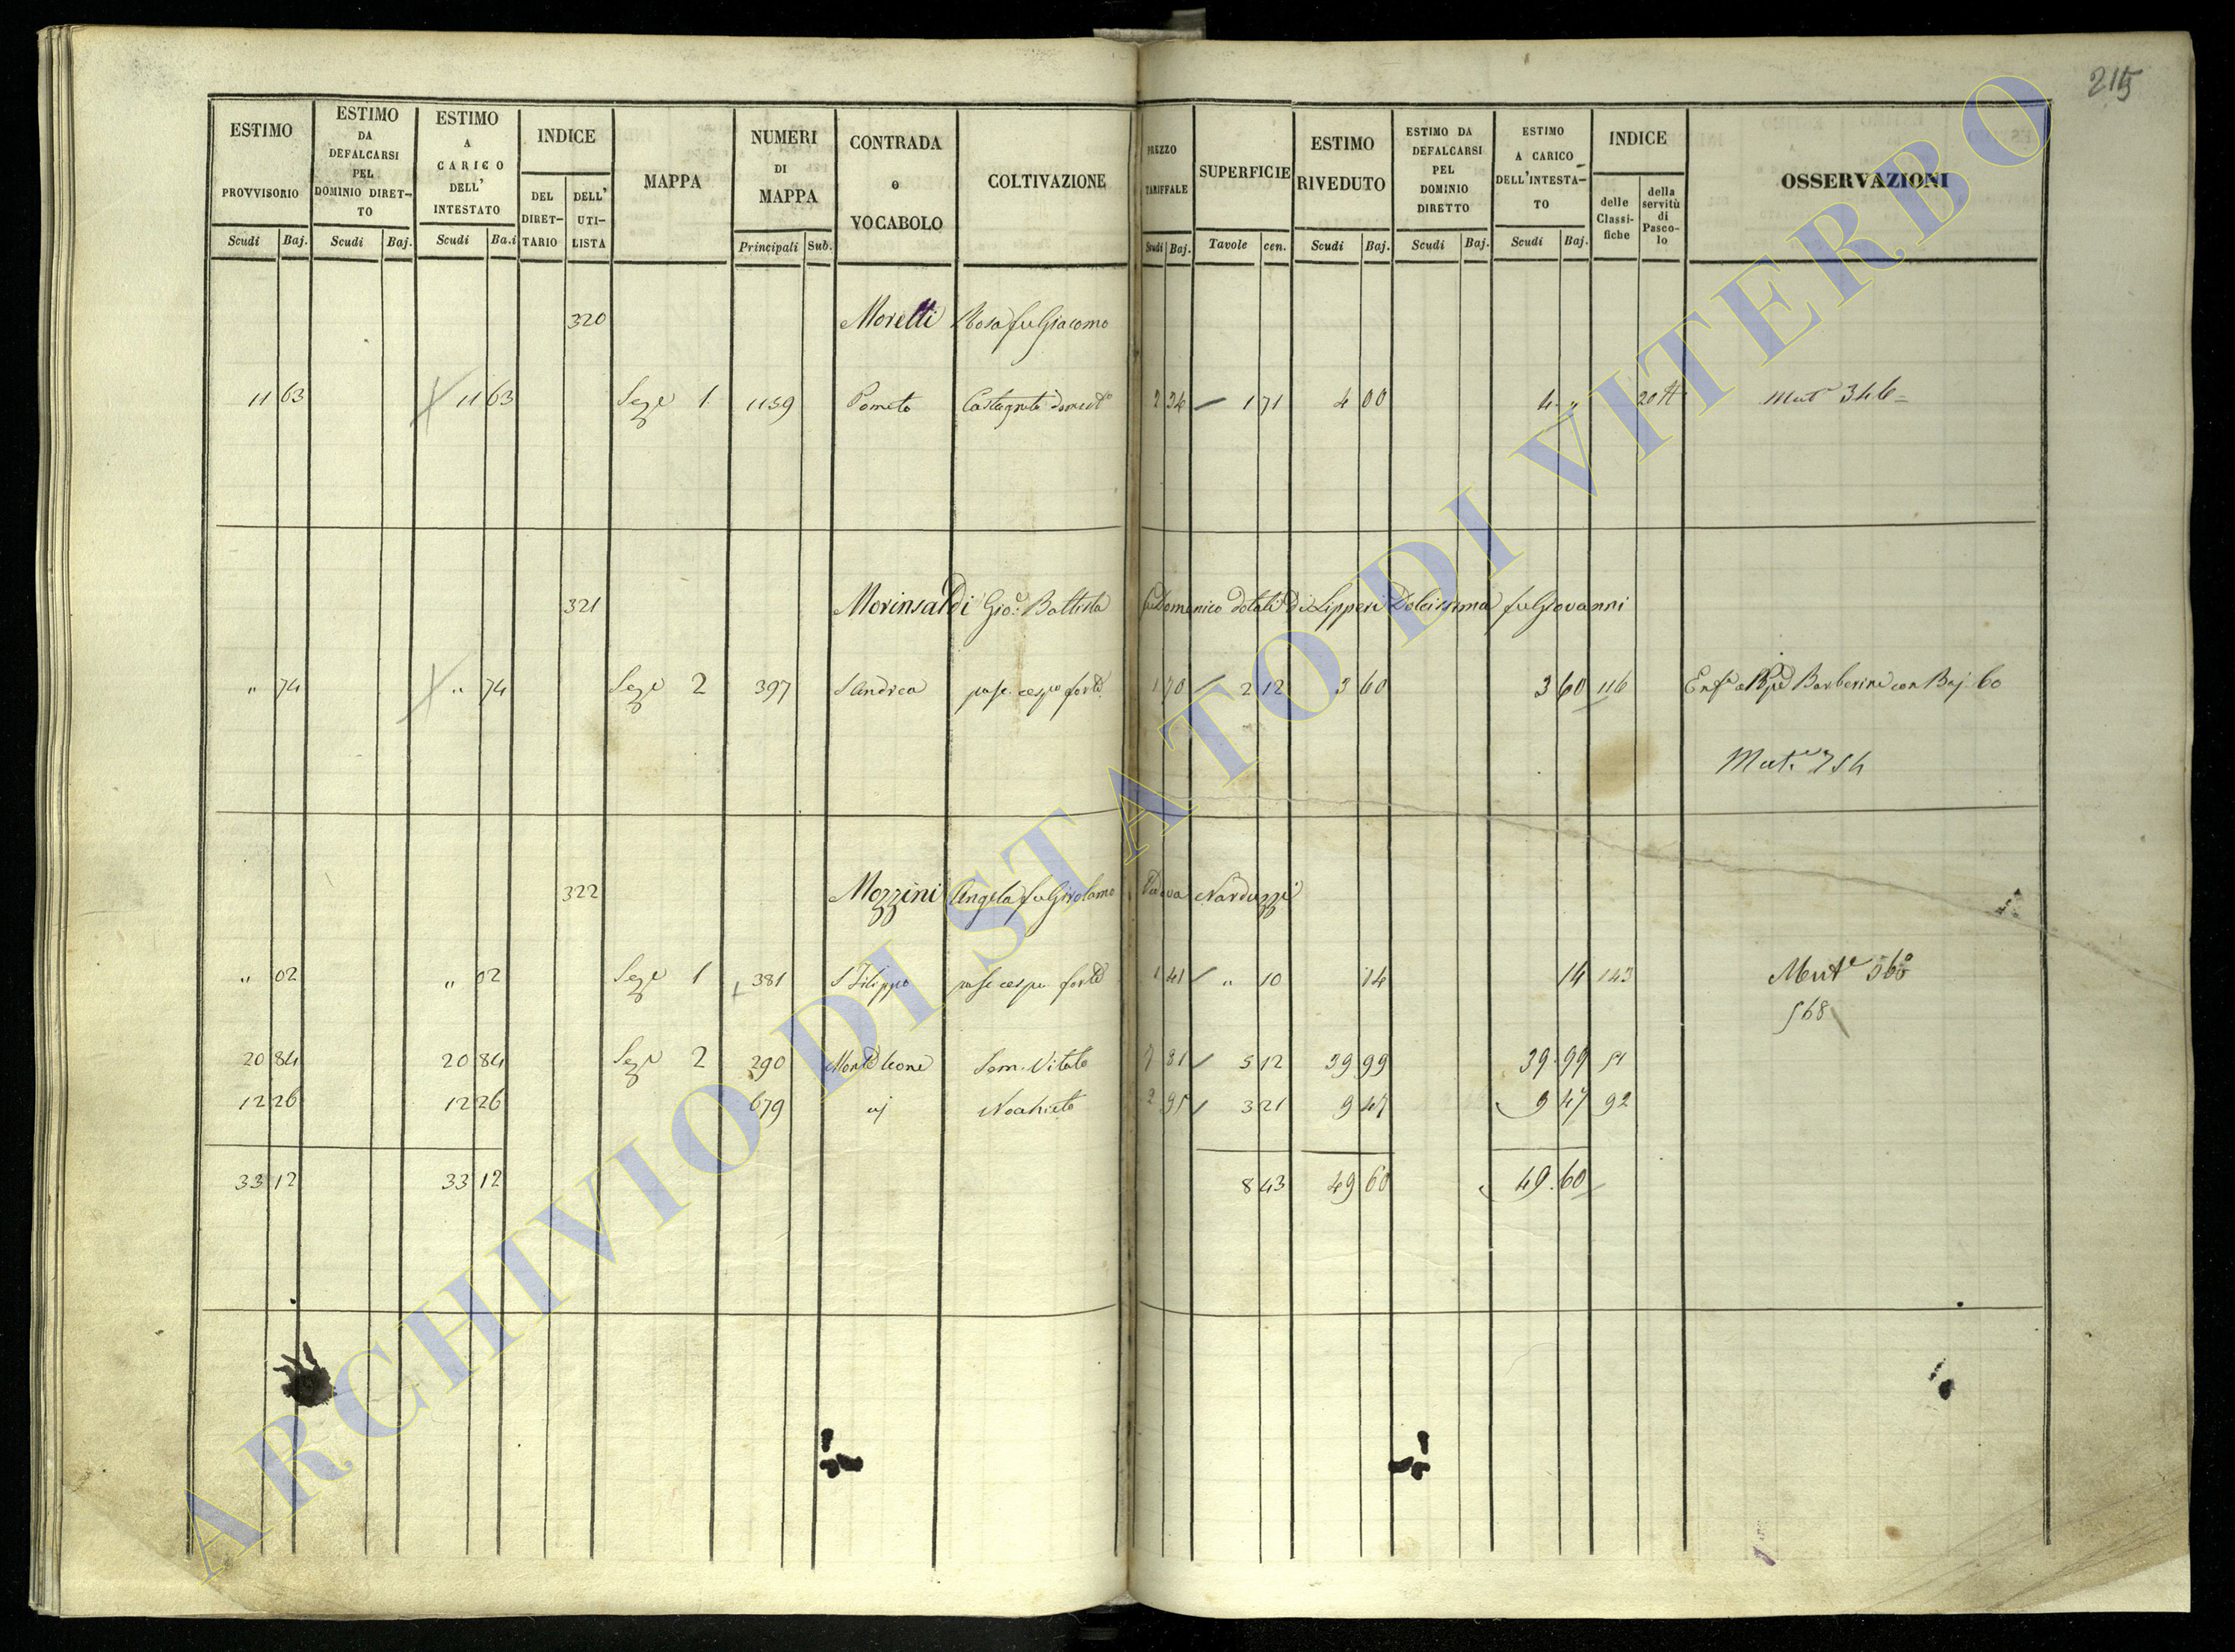 215
ESTIMO PROVVISORIO Scudi Baj.
ESTIMO DA DEFALCARSI PEL DOMINIO DIRETTO Scudi Baj.
ESTIMO A CARICO DELL' INTESTATO Scudi Baj.
INDICE DEL DIRETTARIO DELL' UTILISTA
MAPPA
NUMERI DI MAPPA Principali Sub.
CONTRADA o VOCABOLO
COLTIVAZIONE
PREZZO TARIFFALE Scudi Baj.
SUPERFICIE Tavole cen.
ESTIMO RIVEDUTO Scudi Baj.
ESTIMO DA DEFALCARSI PEL DOMINIO DIRETTO Scudi Baj.
ESTIMO A CARICO DELL'INTESTATO Scudi Baj.
INDICE delle Classifiche della servitù di Pascolo
OSSERVAZIONI
320 Moretti Rosa fu Giacomo
11 63 11 63 Seze 1 1159 Pometo Castagneto domest° 2 34 1 71 4 00 4 „ 20 Mute 346
321 Morinsaldi Gio. Battista fu Domenico dotali di Lipperi Dolcissima fu Giovanni
„ 74 „ 74 Sezе 2 397 S Andrea pasc. cespo forte 1 70 2 12 3 60 3 60 116 Barberini con Baj. 60
Mute 754
322 Mozzini Angela fu Girolamo Vedova Narduzzi
„ 02 „ 02 Seze 1 381 S Filippo pasc cespo forte 1 41 „ 10 14 14 143 Mute 560
568
20 84 20 84 Seze 2 290 Monte leone Sem. Vitato 7 81 5 12 39 99 39 99 51
12 26 12 26 679 Nocchieto 2 95 3 21 9 47 9 47 92
33 12 33 12 8 43 49 60 49 60
ARCHIVIO DI STATO DI VITERBO